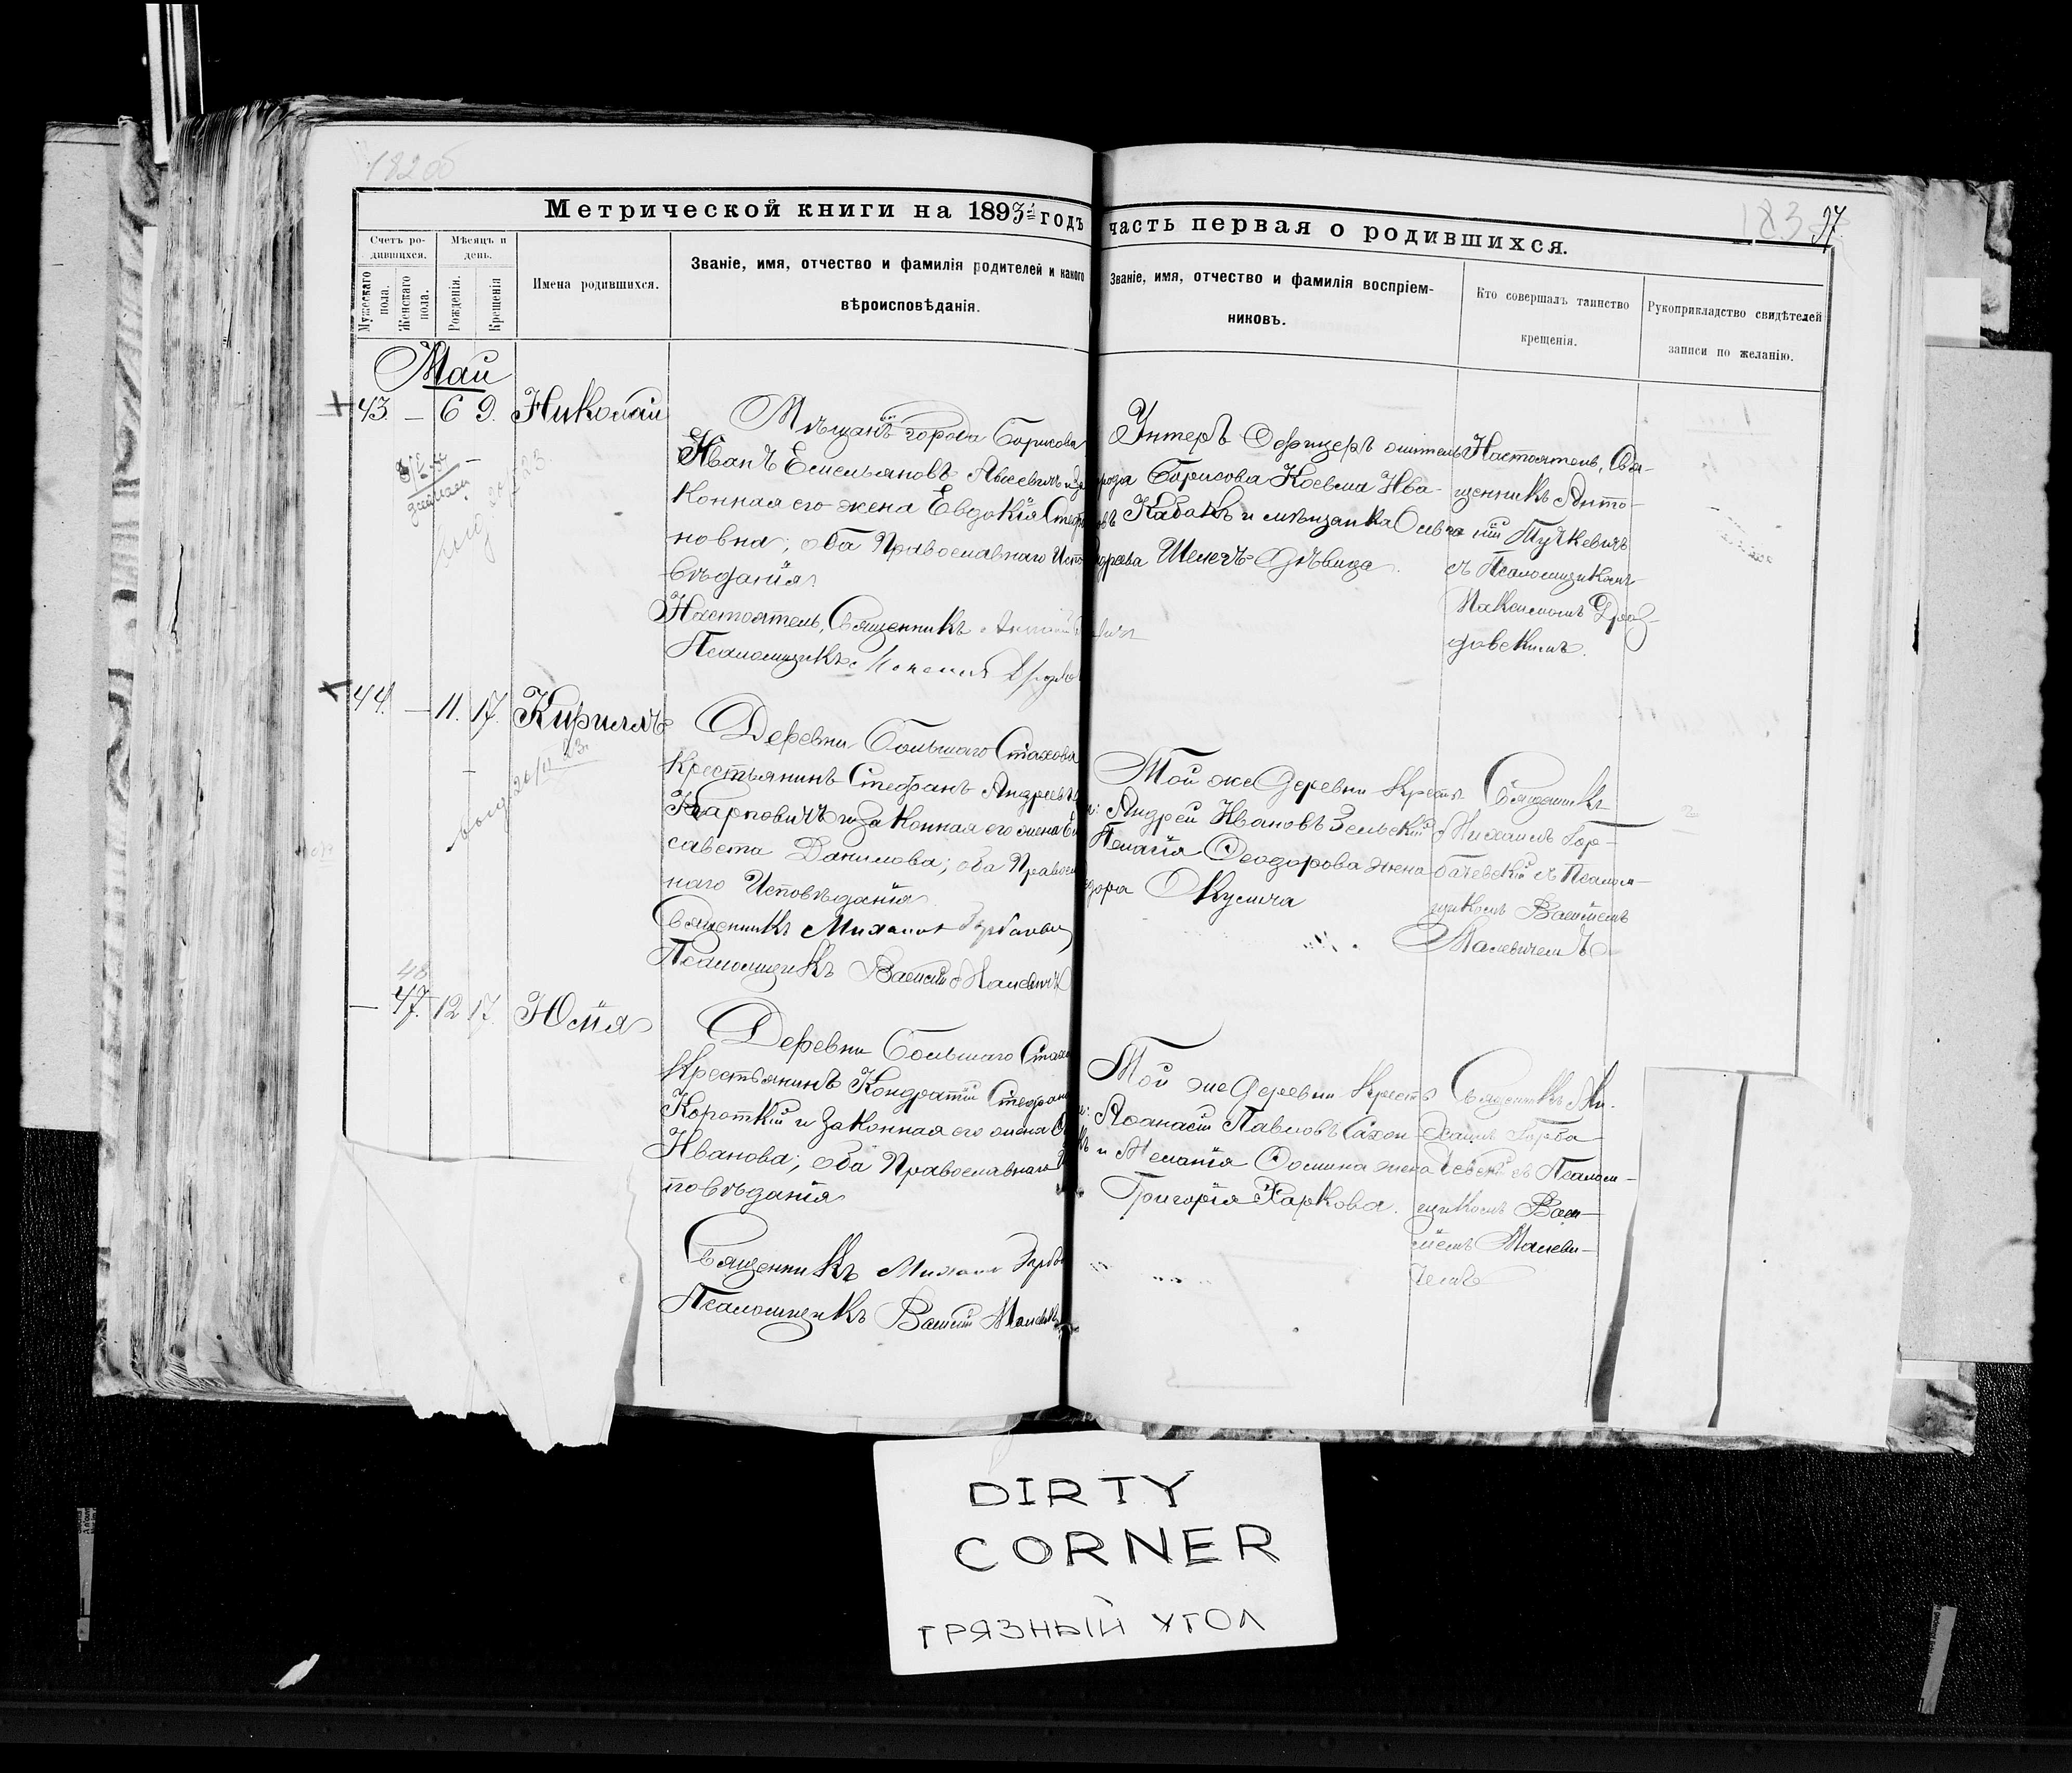 182 об
183
97
Метрической книги на 1893й годъ
часть первая о родившихся.
Счетъ родившихся.
Мужескаго пола.
Женскаго пола.
Мѣсяцъ и день.
Рожденія.
Крещенія
Имена родившихся.
Званіе, имя, отчество и фамилія родителей и какого
вѣроисповѣданія.
Званіе, имя, отчество и фамилія воспріем-
никовъ.
Кто совершалъ таинство
крещенія.
Рукоприкладство свидѣтелей
записи по желанію.
Май
43. — 6 9. Николай
Мѣщанинъ города Борисова
Иванъ Емельяновъ
конная его жена Евдокія
новна, оба Православнаго
вѣданія
Настоятель, Священникъ
Псаломщикъ
Унтеръ Офицеръ житель
рода Борисова Косьма Ива-
овъ Кабакъ и мѣщанка
Шелегъ Дѣвица.
Настоятель, Свя-
щенникъ Анто-
ній Тучкевичъ
съ Псаломщикомъ
Максимомъ Дроз-
довскимъ.
44. — 11. 17. Кириллъ
Деревни Большаго Стахова
Крестьянинъ Стефанъ Андреевъ
Карповичъ и законная его жена Ели
савета Данилова; оба Правосл
наго Исповѣданія
Священникъ Михаилъ
Псаломщикъ Василій Малевичъ
Той же Деревни Крестья
Андрей Ивановъ Зельскій
Пелагія Ѳеодорова жена
Ѳ Окулича
Священникъ
Михаилъ Гор-
бачевскій съ Псалом-
щикомъ Василіемъ
Малевичемъ
48
— 47. 12 17. Юлія
Деревни Большаго Стахо
Крестьянинъ Кондратій Стефан
Короткій и законная его жена
Иванова; оба Православнаго
повѣданія
Священникъ Михаилъ Горба
Псаломщикъ Василій Малевичъ
Той же Деревни Крестья
Аѳанасій Павловъ Сахон
и Меланія Ѳомина жена
Григорія Харкова.
Священникъ Ми-
хаилъ Горба
чевскій съ Псалом-
щикомъ Васи-
ліемъ Малеви-
чемъ
DIRTY
CORNER
ГРЯЗНЫЙ УГОЛ